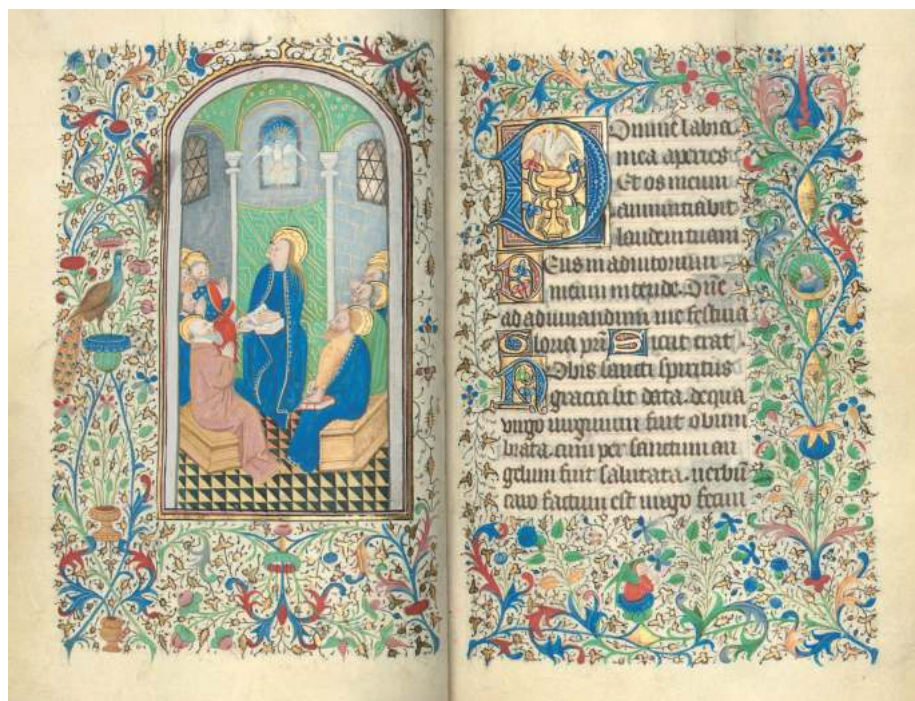 Domine labia
mea aperies
Et os meum
annunciabit
laudem tuam
Deus in adiutorium
meum intende. Dne
ad adiuuandum me festina
Gloria pri Sicut erat.
Nobis sancti spiritus
gracia sit data. de qua
uirgo uirginum fuit obum
brata. cum per sanctum an
gelum fuit salutata. uerbu
caro factum est uirgo fecun